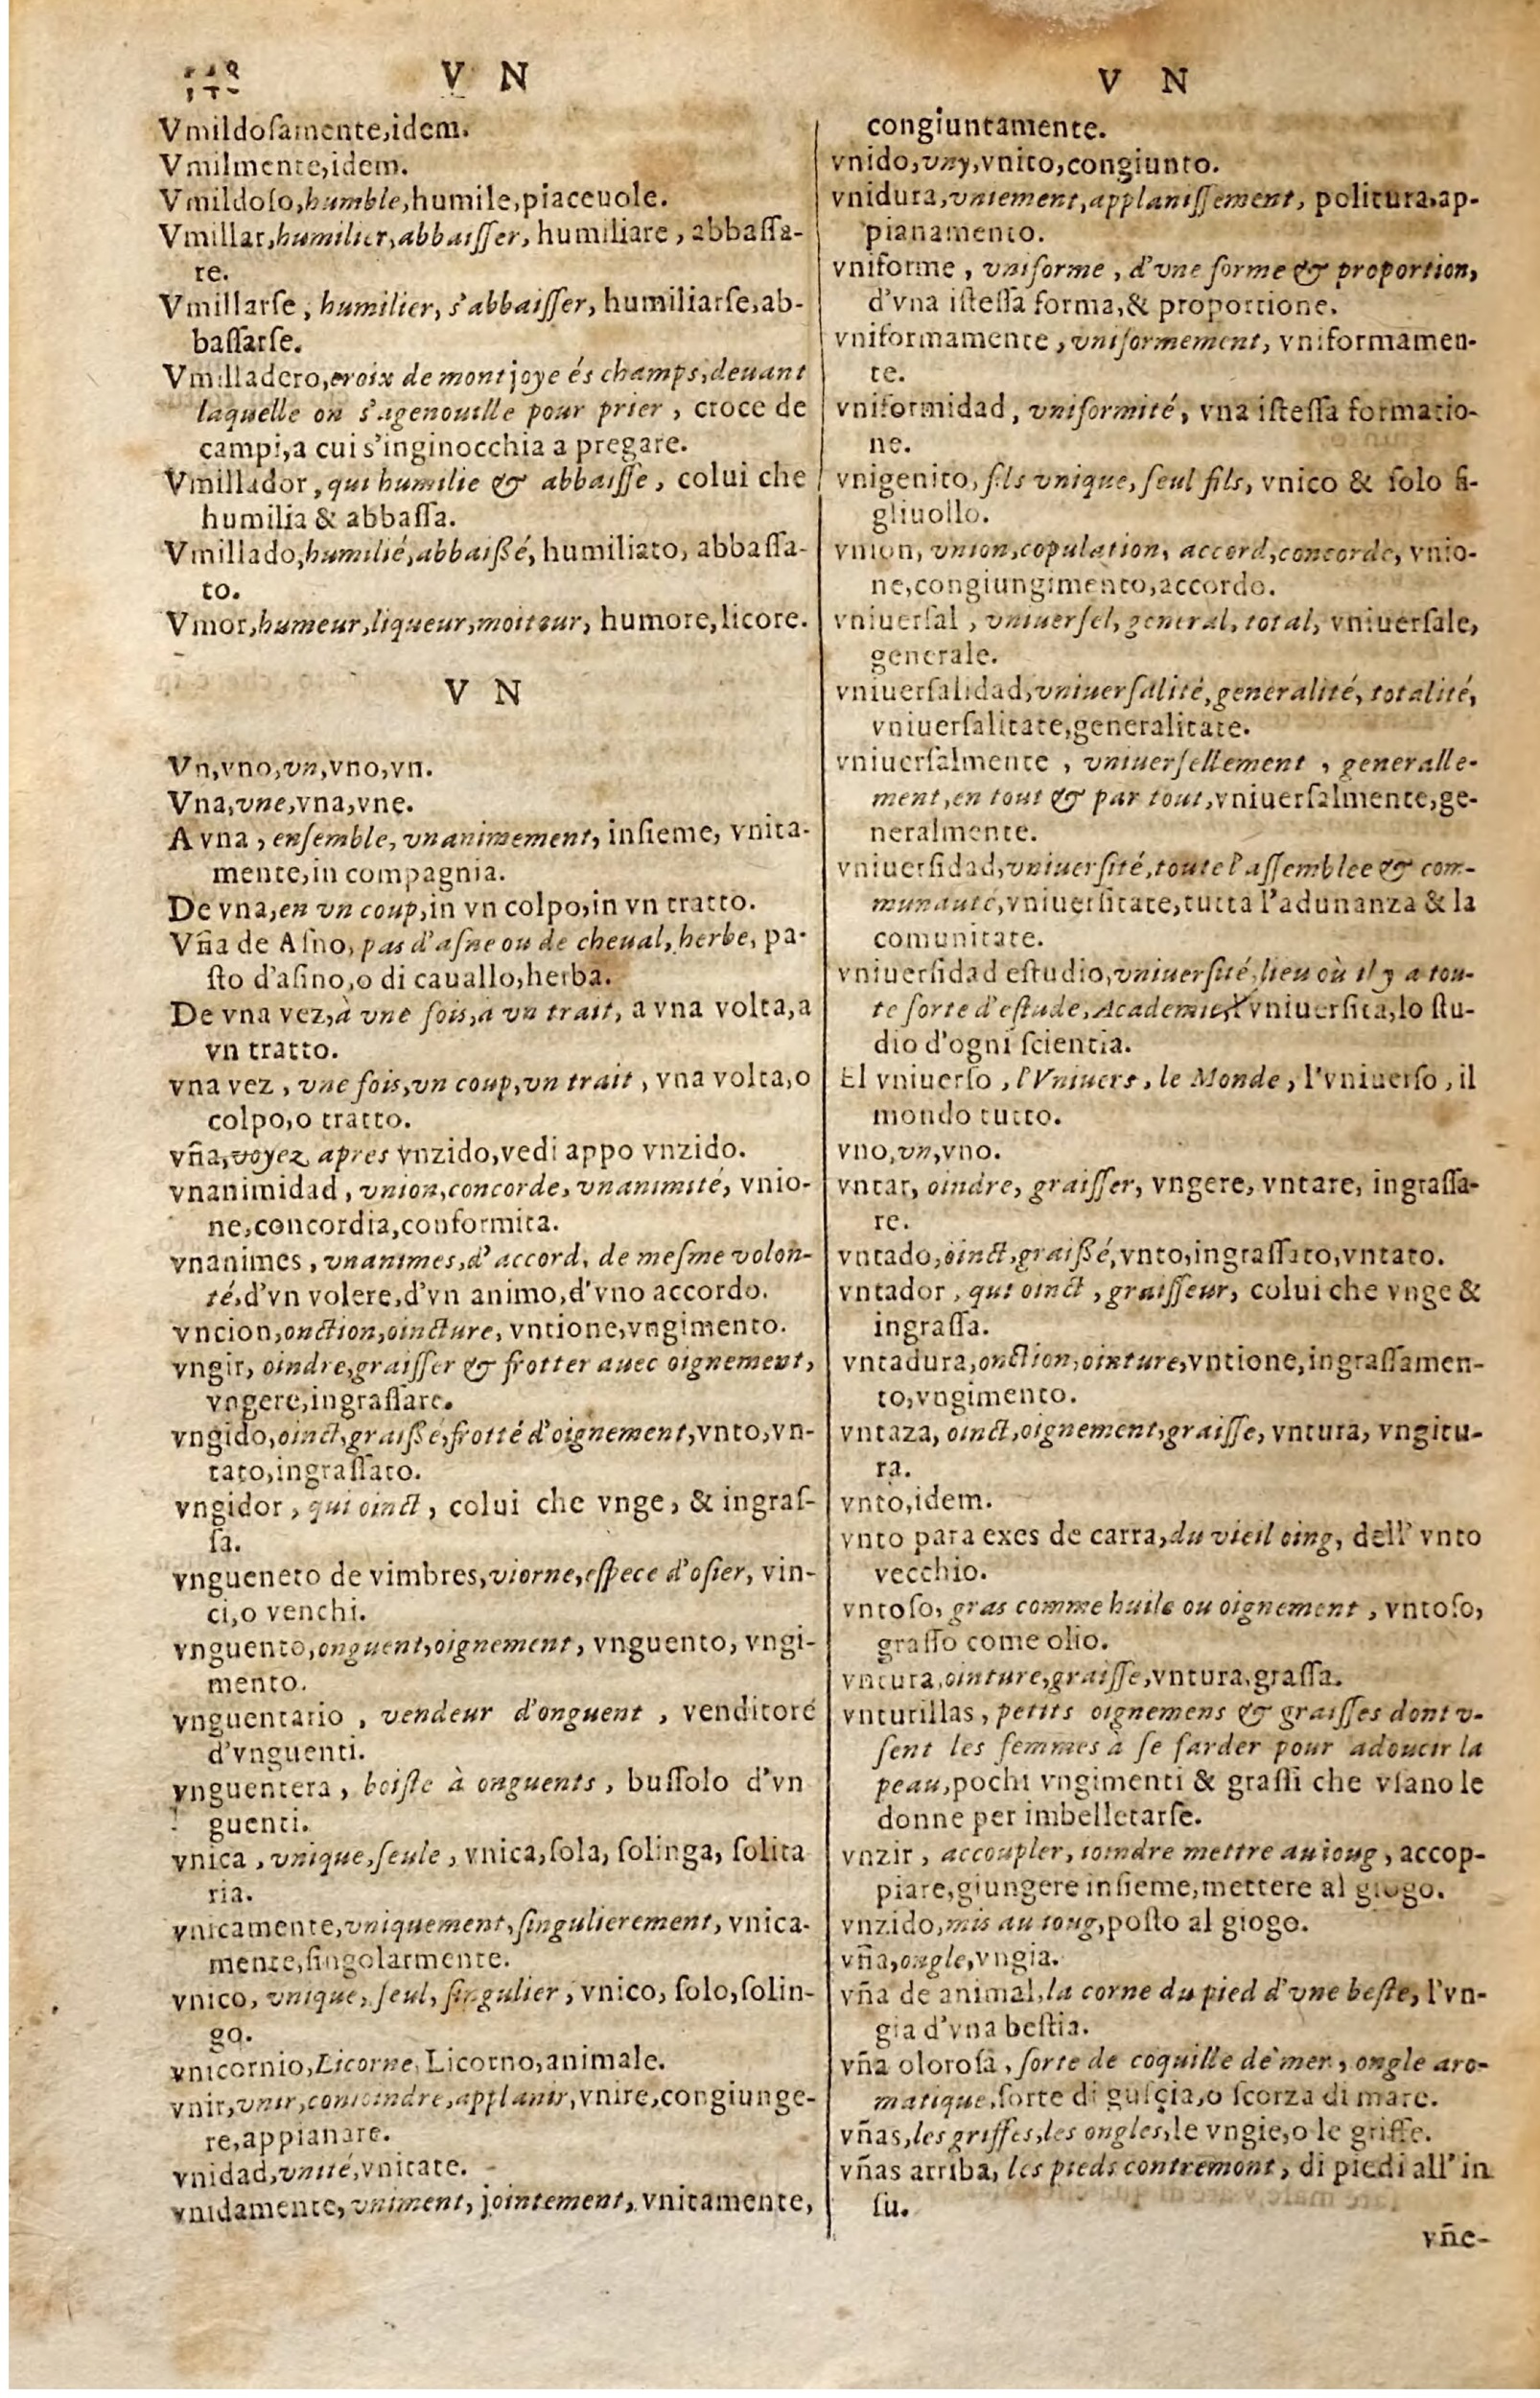 V N
Vmildoſamente,idem.
Vmilmente,idem.
Vmildoſo,humble,humile,piaceuole.
Vmillar,humilier,abbaiſſer, humiliare, abbaſſa-
re.
Vmillarſe, humilier, s'abbaiſſer, humiliarſe,ab-
baſſarſe.
Vmilladero,croix de montjoye és champs,deuant
laquelle on s'agenouille pour prier, croce de
campi,a cui s'inginocchia a pregare.
Vmillador, qui humilie & abbaiſſe, colui che
humilia & abbaſſa.
Vmillado,humilié,abbaißé, humiliato, abbaſſa-
to.
Vmor,humeur,liqueur,moiteur, humore,licore.
V N
Vn,vno,vn,vno,vn.
Vna,vne,vna,vne.
A vna, enſemble, vnanimement, inſieme, vnita-
mente,in compagnia.
De vna,en vn coup,in vn colpo,in vn tratto.
Vña de Aſno, pas d'aſne ou de cheual, herbe, pa-
ſto d'aſino,o di cauallo,herba.
De vna vez,à vne fois,à vn trait, a vna volta,a
vn tratto.
vna vez, vne fois,vn coup,vn trait, vna volta,o
colpo,o tratto.
vña,voyez apres vnzido,vedi appo vnzido.
vnanimidad, vnion,concorde,vnanimité, vnio-
ne,concordia,conformita.
vnanimes, vnanimes,d'accord, de meſme volon-
té,d'vn volere,d'vn animo,d'vno accordo.
vncion,onction,oincture, vntione,vngimento.
vngir, oindre,graiſſer & frotter auec oignement,
vngere,ingraſſare.
vngido,oinct,graißé,frotté d'oignement,vnto,vn-
tato,ingraſſato.
vngidor, qui oinct, colui che vnge, & ingraſ-
ſa.
vngueneto de vimbres,viorne,eſpece d'oſier, vin-
ci,o venchi.
vnguento,onguent,oignement, vnguento, vngi-
mento.
vnguentario, vendeur d'onguent, venditore
d'vnguenti.
vnguentera, boiſte à onguents, buſſolo d'vn
guenti.
vnica, vnique,ſeule, vnica,ſola, ſolinga, ſolita
ria.
vnicamente,vniquement,ſingulierement, vnica-
mente,ſingolarmente.
vnico, vnique, ſeul, ſingulier, vnico, ſolo,ſolin-
go.
vnicornio,Licorne, Licorno,animale.
vnir,vnir,conioindre,applanir,vnire,congiunge-
re,appianare.
vnidad,vnité,vnitate.
vnidamente, vniment, jointement, vnitamente,
V N
congiuntamente.
vnido,vny,vnito,congiunto.
vnidura,vniement,applaniſſement, politura,ap-
pianamento.
vniforme, vniforme, d'vne forme & proportion,
d'vna iſteſſa forma,& proportione.
vniformamente, vniformement, vniformamen-
te.
vniformidad, vniformité, vna iſteſſa formatio-
ne.
vnigenito, fils vnique, ſeul fils, vnico & ſolo fi-
gliuollo.
vnion, vnion,copulation, accord,concorde, vnio-
ne,congiungimento,accordo.
vniuerſal, vniuerſel, general, total, vniuerſale,
generale.
vniuerſalidad,vniuerſalité,generalité, totalité,
vniuerſalitate,generalitate.
vniuerſalmente, vniuerſellement, generalle-
ment,en tout & par tout,vniuerſalmente,ge-
neralmente.
vniuerſidad,vniuerſité,toute l'aſſemblee & com-
munauté,vniuerſitate,tutta l'adunanza & la
comunitate.
vniuerſidad eſtudio,vniuerſité,lieu où il y a tou-
te ſorte d'eſtude,Academie,vniuerſita,lo ſtu-
dio d'ogni ſcientia.
El vniuerſo, l'Vniuers, le Monde, l'vniuerſo, il
mondo tutto.
vno,vn,vno.
vntar, oindre, graiſſer, vngere, vntare, ingraſſa-
re.
vntado,oinct,graißé,vnto,ingraſſato,vntato.
vntador, qui oinct, graiſſeur, colui che vnge &
ingraſſa.
vntadura,onction,ointure,vntione,ingraſſamen-
to,vngimento.
vntaza, oinct,oignement,graiſſe, vntura, vngitu-
ra.
vnto,idem.
vnto para exes de carra,du vieil oing, dell' vnto
vecchio.
vntoſo, gras comme huile ou oignement, vntoſo,
graſſo come olio.
vntura,ointure,graiſſe,vntura,graſſa.
vnturillas, petits oignemens & graiſſes dont v-
ſent les femmes à ſe farder pour adoucir la
peau,pochi vngimenti & graſſi che vſano le
donne per imbelletarſe.
vnzir, accoupler, ioindre mettre au ioug, accop-
piare,giungere inſieme,mettere al giogo.
vnzido,mis au ioug,poſto al giogo.
vña,ongle,vngia.
vña de animal,la corne du pied d'vne beſte, l'vn-
gia d'vna beſtia.
vña oloroſa, ſorte de coquille de mer, ongle aro-
matique,ſorte di guſçia,o ſcorza di mare.
vñas,les griffes,les ongles,le vngie,o le griffe.
vñas arriba, les pieds contremont, di piedi all' in
ſu.
vñe-